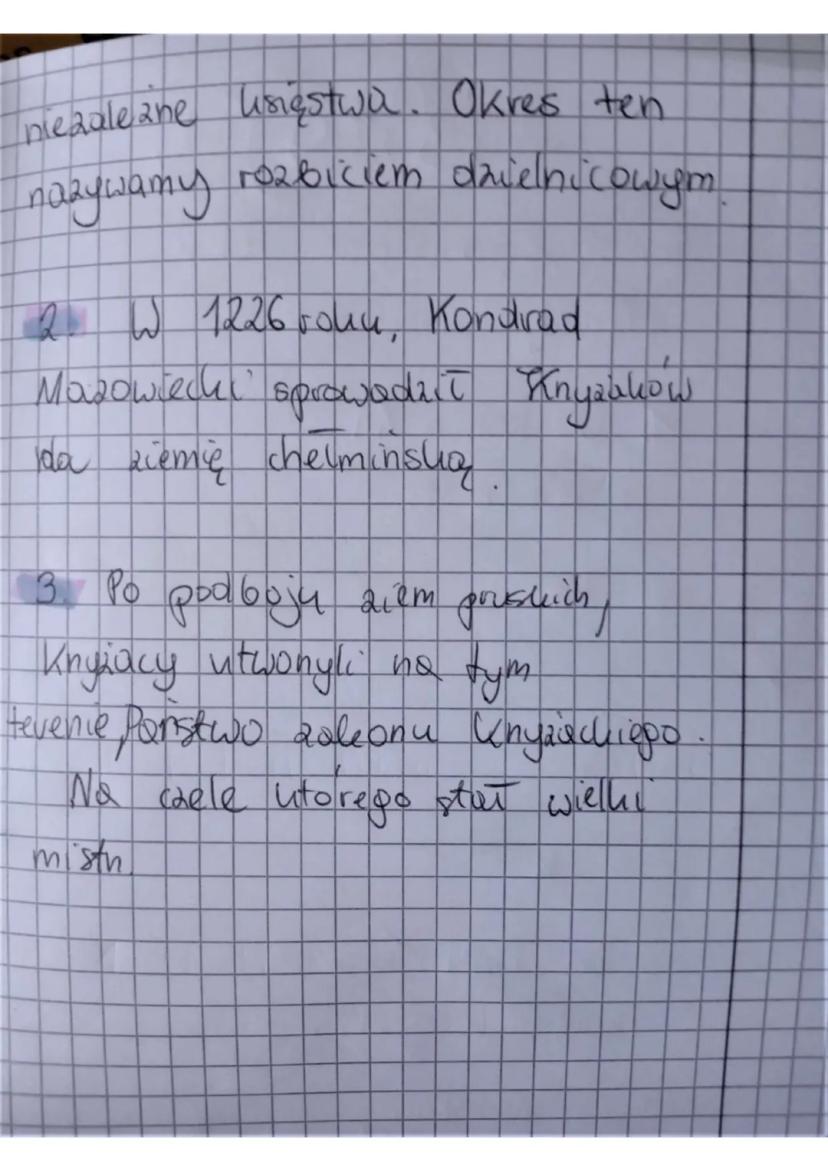 niezależne księstwa. Okres ten
nazywamy rozbiciem dzielnicowym.
2. W 1226 roku, Kondrad
Mazowiecki sprowadził Krzyżaków
na ziemię chełmińską.
3. Po podboju ziem pruskich,
Krzyżacy utworzyli na tym
terenie Państwo zakonu Krzyżackiego.
Na czele którego stał wielki
mistrz.